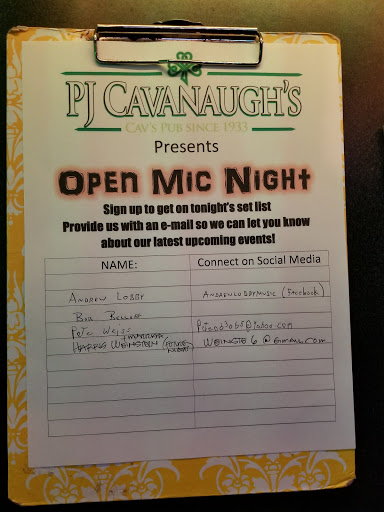 PJ CAVANAUGH'S
CAV'S PUB SINCE 1933
Presents
OPEN MIC NIGHT
Sign up to get on tonight's set list
Provide us with an e-mail so we can let you know
about our latest upcoming events!
NAME: Connect on Social Media
ANDREW LOBBY (Facebook)
BOB
PETE WEISS
HARRIS WEINSTEIN WEINGTE6@GMAIL.COM